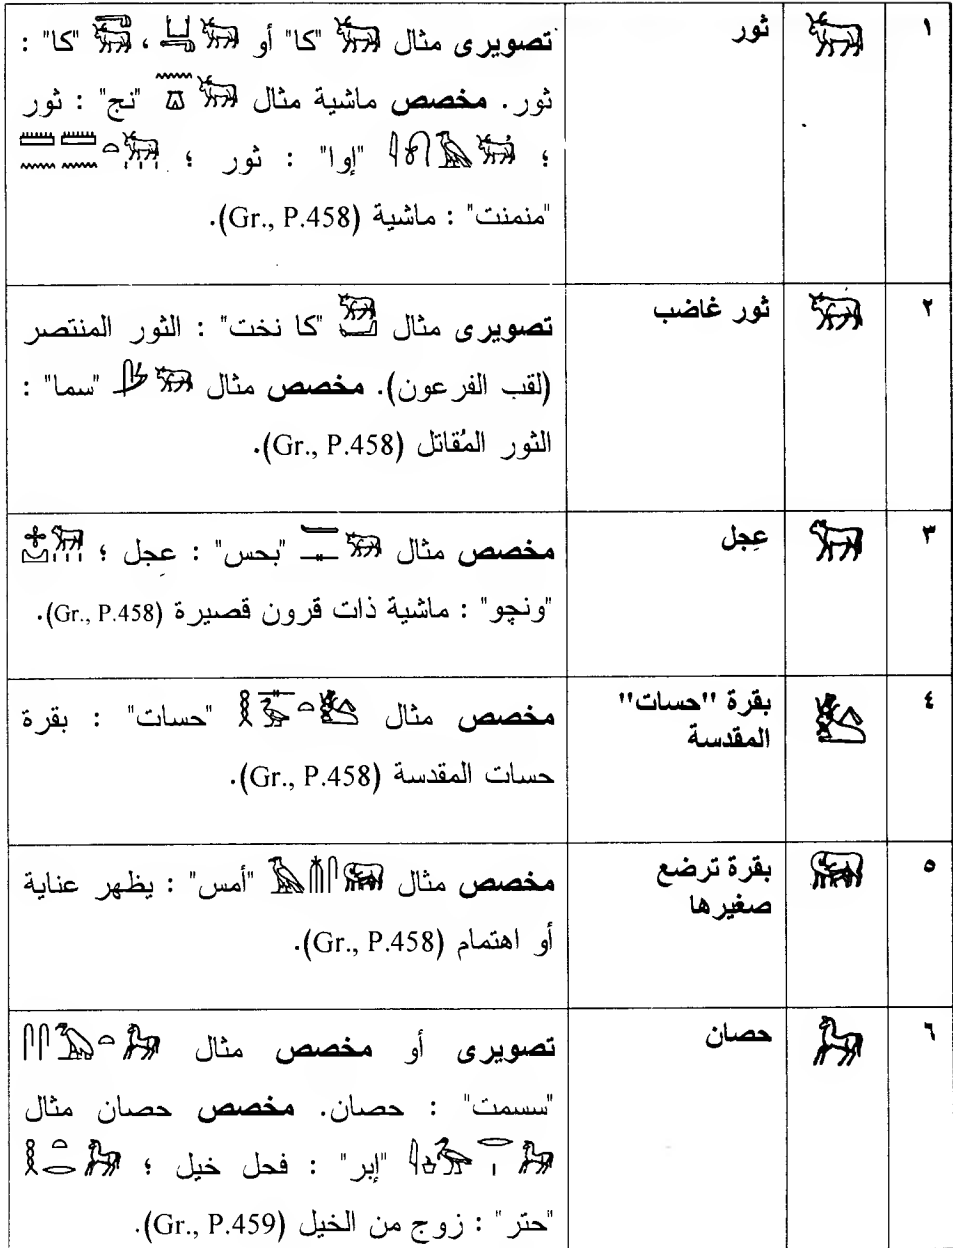 ١ 𓃒 ثور تصويرى مثال 𓃒 "كا" أو 𓂓𓃒 ، 𓃒 "كا" :
ثور . مخصص ماشية مثال 𓈖𓎼𓃒 "نج" : ثور
؛ 𓇋𓍯𓄿𓃒 "إوا" : ثور ؛ 𓏠𓈖𓏠𓈖𓏏𓃒𓏥
"منمنت" : ماشية (Gr., P.458).
٢ 𓃓 ثور غاضب تصويرى مثال 𓃓𓂡 "كا نخت" : الثور المنتصر
(لقب الفرعون). مخصص مثال 𓃓 "سما" :
الثور المُقاتل (Gr., P.458).
٣ 𓃔 عِجل مخصص مثال 𓃔 "بحس" : عجل ؛ 𓃔𓏥
"ونچو" : ماشية ذات قرون قصيرة (Gr., P.458).
٤ بقرة "حسات" المقدسة مخصص مثال "حسات" : بقرة
حسات المقدسة (Gr., P.458).
٥ 𓃖 بقرة ترضع صغيرها مخصص مثال 𓅓𓋴𓃖 "أمس" : يظهر عناية
أو اهتمام (Gr., P.458).
٦ 𓃗 حصان تصويرى أو مخصص مثال 𓋴𓋴𓅓𓏏𓃗
"سسمت" : حصان. مخصص حصان مثال
𓃗 "إبر" : فحل خيل ؛ 𓎛𓏏𓂋𓃗
"حتر" : زوج من الخيل (Gr., P.459).